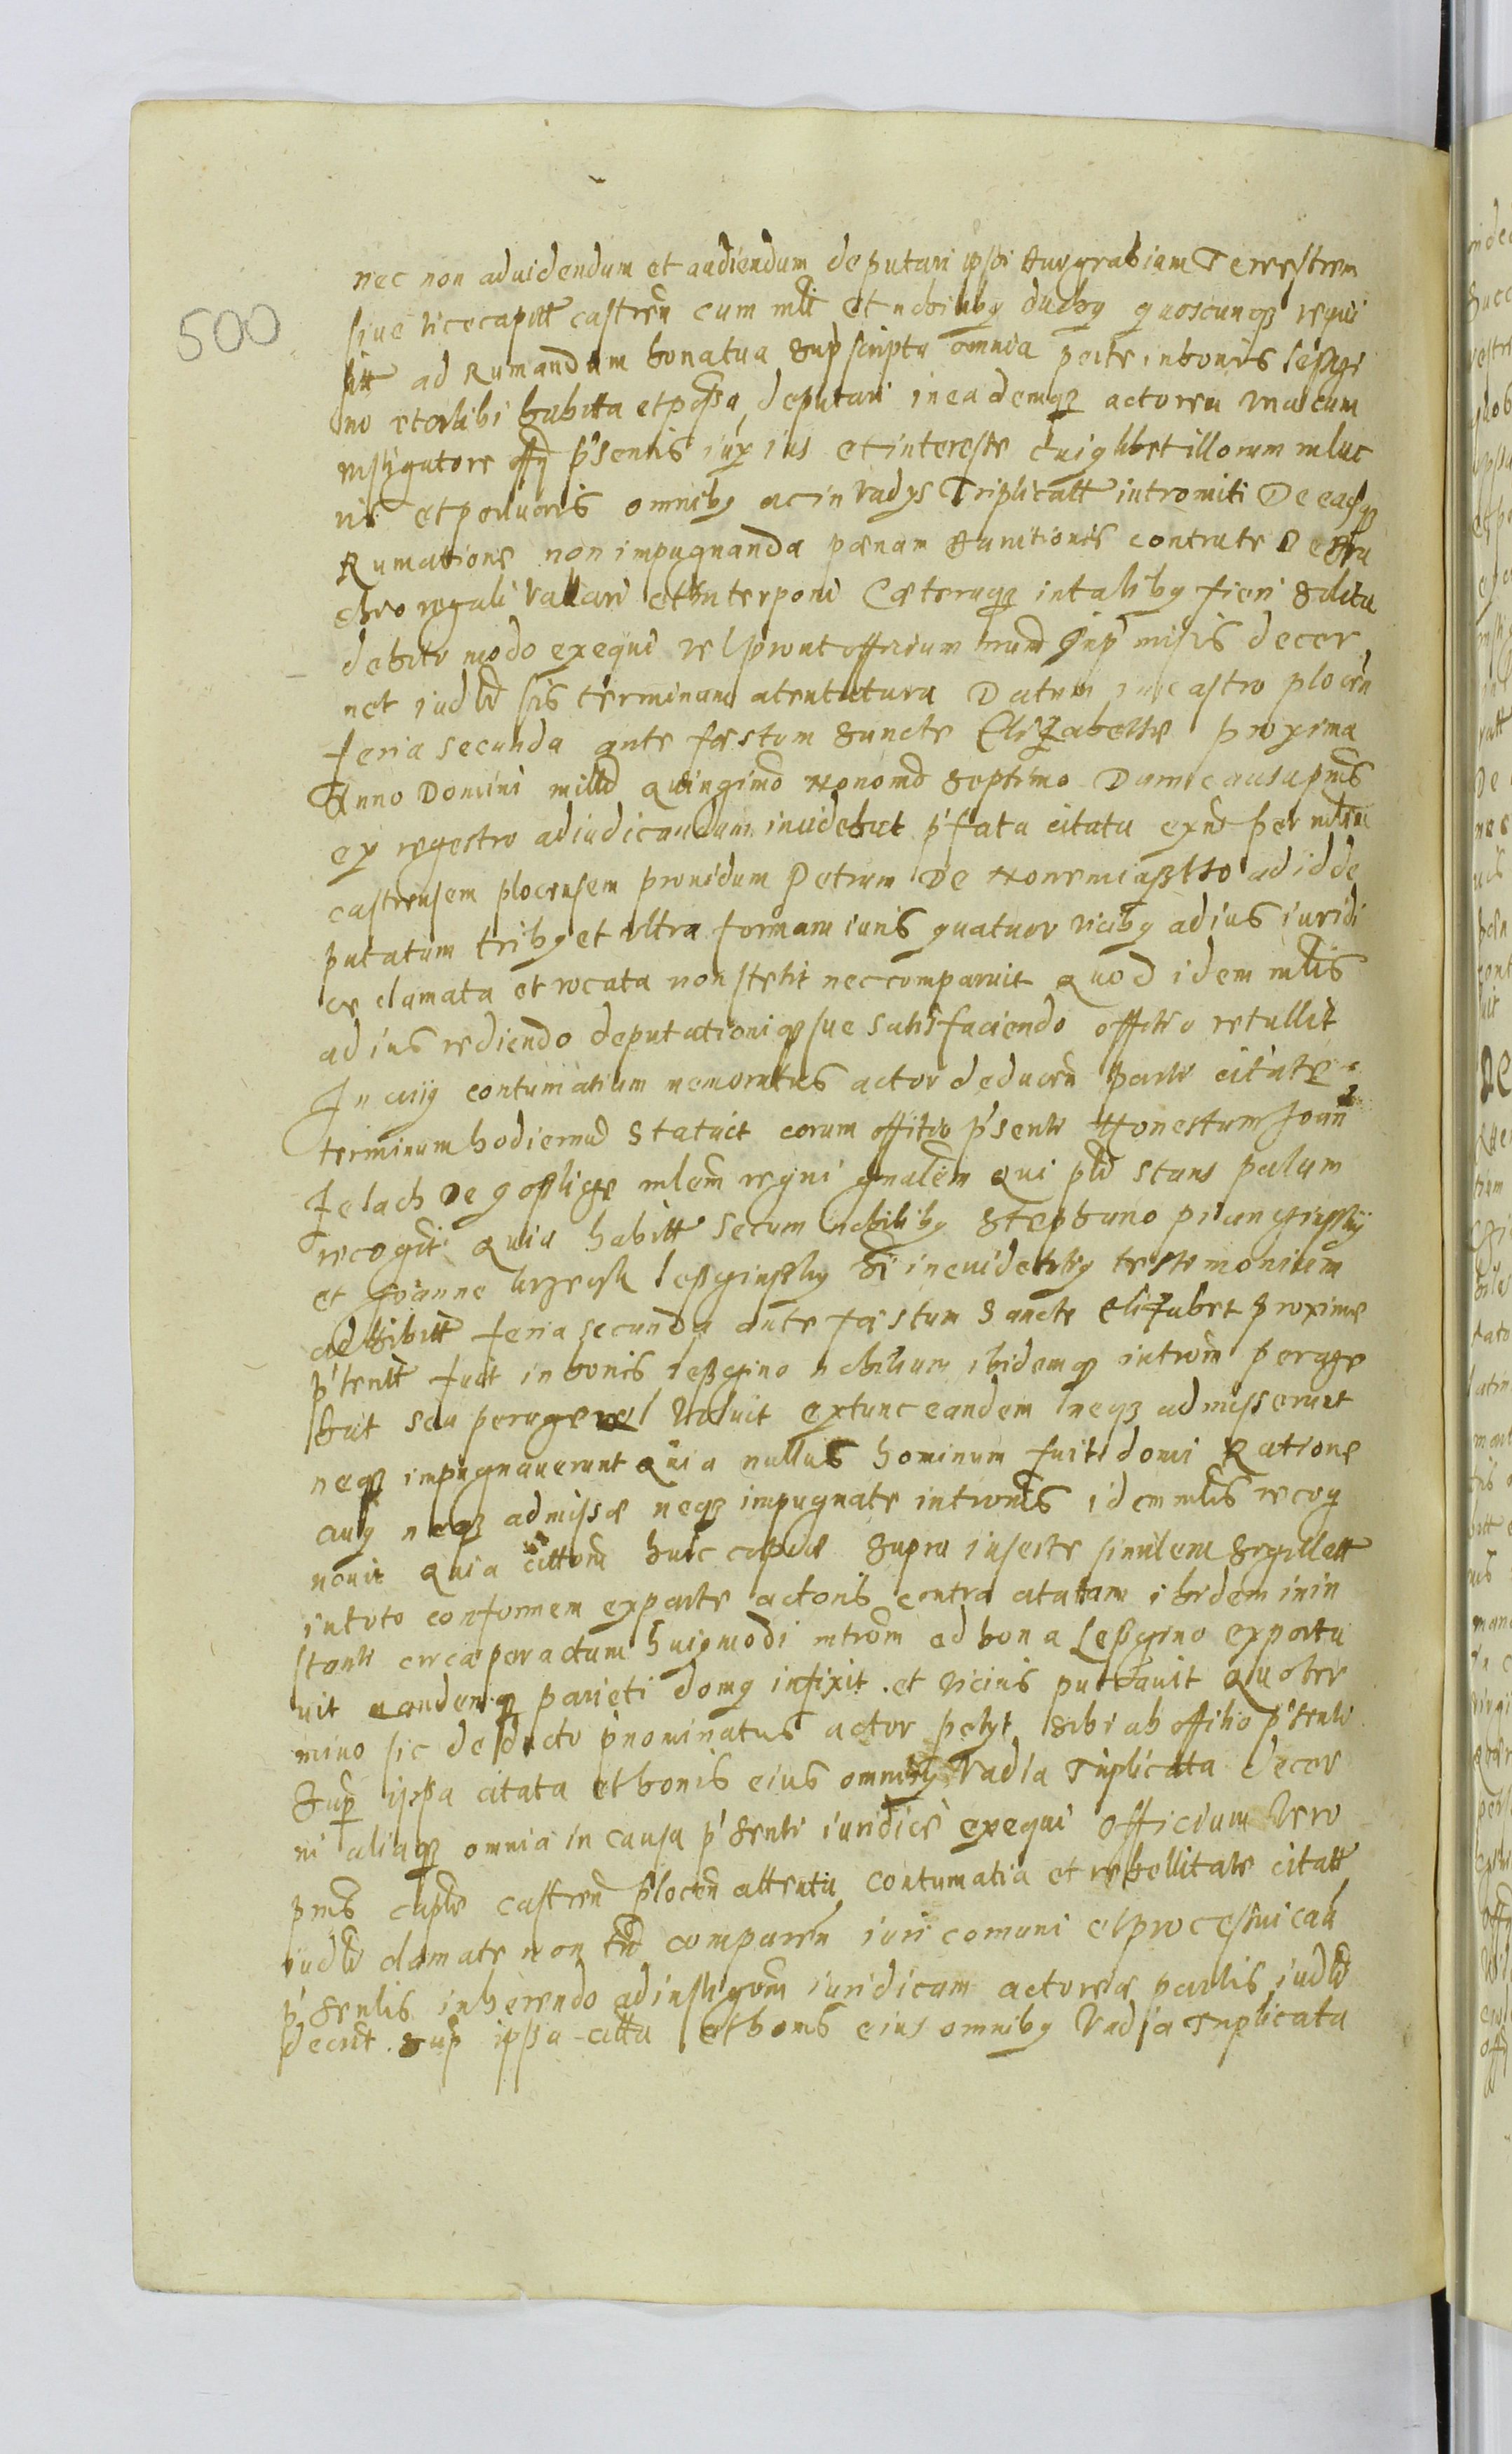 500
nec non ad uidendum et audiendum deputari ipsi Burgrabium Terrestrem
siue vicecapitt castren cum mlt et nobilibq duobq quoscunqz requi
ad Rumandum bona tua supscripta omnia parte in bonis
no et alibi habitta et possa deputari in eademqz actorem vna cum
instigatore offy p'sentis iux ius et interesse cuiqlibet illorum in luc
ris et perlucris omnibq ac in vadys Triplicatt intromiti De eaqz
Rumatione non impugnanda pænam Banitionis contra te D
regali vallari et interponi Cæteraqz in talibq fieri solita
debito modo exequi vel prout officium nrum in p'misis decer
net iudlr sis terminum atentatura Datum in castro plocen
feria secunda ante fæstum Sancte Elizabethæ proxima
Anno Domini milld quingimo Nonomo Septimo Dum causa pns
ex regestro adiudicandum inuidebat p'fata citata exno per mlem
castrensem plocensem prouidum Petrum De ad id de
putatum tribq et vltra formam iuris quatuor vicibq ad ius iuridi
ce clamata et vocata non stetit nec comparuit quod idem mlis
ad ius rediendo deputationiqz sue satisfaciendo offitio retullit
In cuiq contumatium memoratus actor deducen parte citate
terminum hodiernu Statuit coram offitio p'senti Honestum Joan
Jelach De goslice mlem regni gnalem qui pld stans palam
recogit quia habitt secum nobilibq Stephano
et Joanne si in euidentiq testimonium
adhibitt feria secunda ante fæstum Sancte Elizabet proxime
p'teritt fuit in bonis nobilium ibidemqz introm perage
bat seu peragere voluit extunc eandem neqz admisserunt
neqz impugnauerunt quia nullus hominum fuit domi Ratione
cuiq neqz admissæ neqz impugnate intromis idem mlis recog
nouit quia cittom huic copiæ supra inserte similem Sigillett
in toto conformem ex parte actoris contra citatam ibidem in in
stanti circa peractum huiqmodi introm ad bona exporta
uit eandemqz parieti domq infixit et vicinis publicauit quo ter
mino sic deducto p'nominatus actor petyt sibi ab offitio p'senti
Sup ipsa citata et bonis eius omnibq Vadia Triplicata decer
ni aliaqz omnia in causa p'senti iuridice exequi Officium Vero
pns caple castren Plocen attenta contumatia et rebellitate citatt
iudlr clamate non tn comparen iuri comuni et processui cau
p'sentis inherendo ad instigom iuridicam actoreæ partis iudlr
decrit sup ipsa citta et bonis eius omnibq Vadia Triplicata